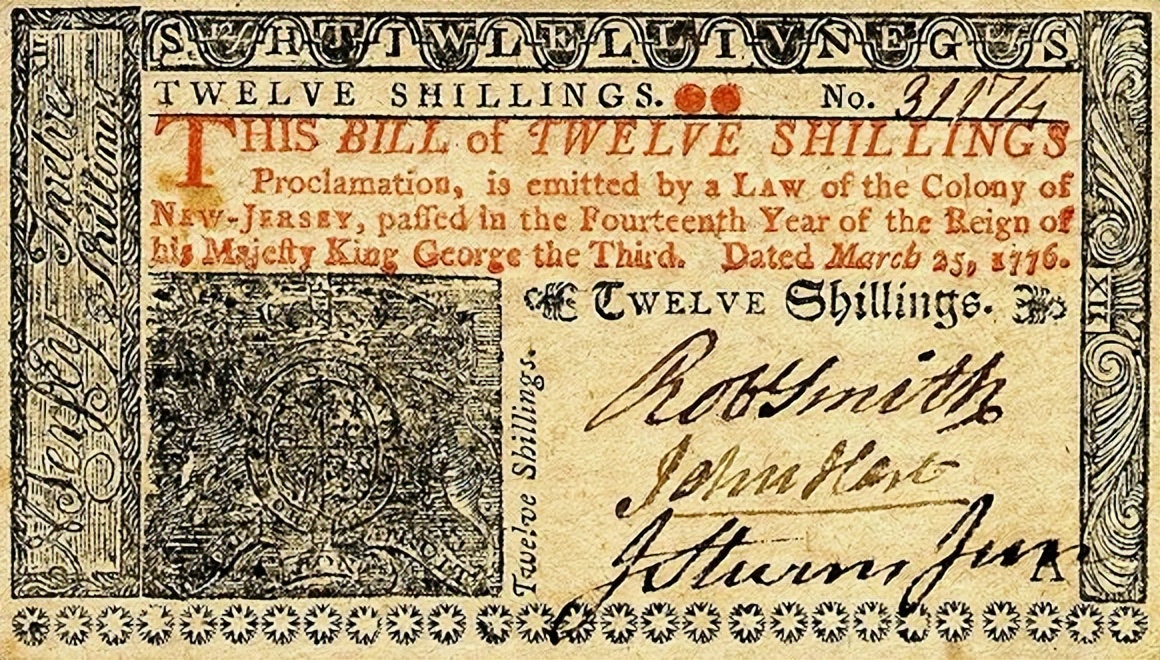 S. H T I W L E L L I V N E G S
TWELVE SHILLINGS. No. 31174
THIS BILL of TWELVE SHILLINGS
Proclamation, is emitted by a LAW of the Colony of
NEW-JERSEY, paſſed in the Fourteenth Year of the Reign of
his Majeſty King George the Third. Dated March 25, 1776.
TWELVE Shillings.
Twelve Shillings.
Robt Smith
John Hart
J Stevens Junr
A
Jerſey
Twelve
Shillings
XII